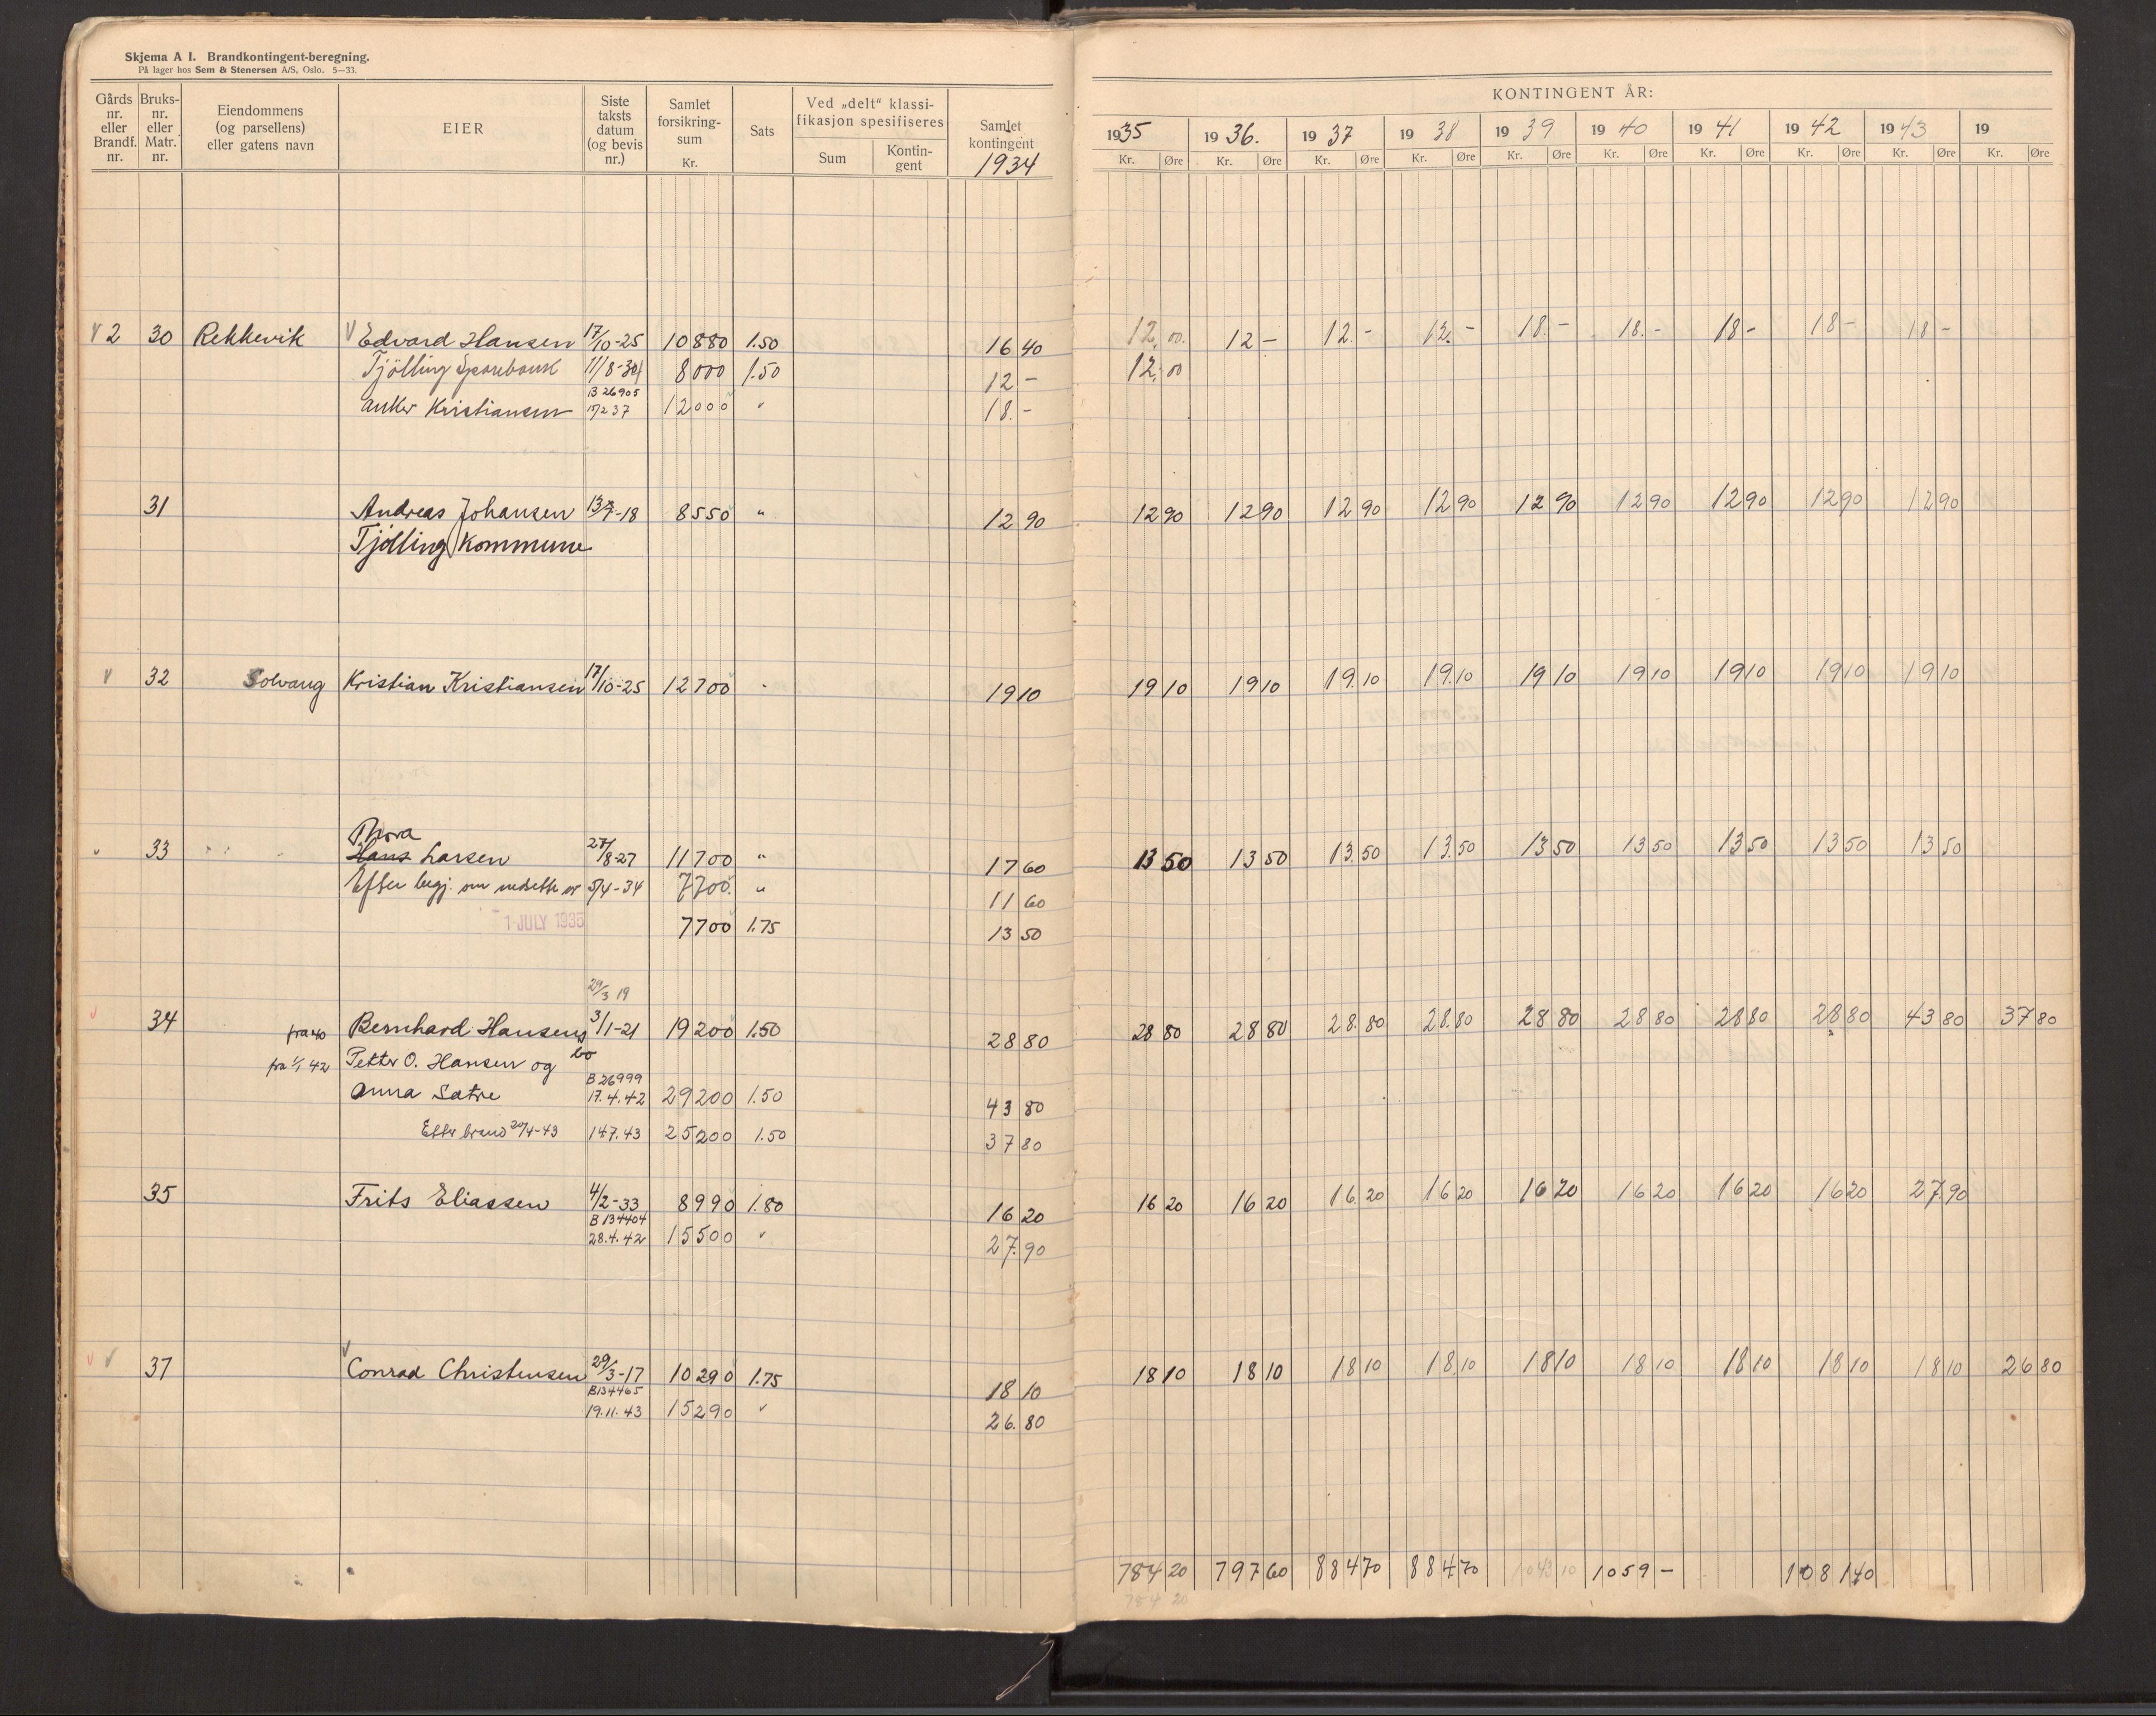 Skjema A I. Brandkontingent-beregning.
På lager hos Sem & Stenersen A/S, Oslo. 5—33.
Gårds nr. eller Brandf. nr. Bruks- nr. eller Matr. nr. Eiendommens (og parsellens) eller gatens navn EIER Siste taksts datum (og bevis nr.) Samlet forsikring- sum Kr. Sats Ved „delt" klassi- fikasjon spesifiseres Sum Kontin- gent Samlet kontingent 1934
KONTINGENT ÅR:
1935 1936. 1937 1938 1939 1940 1941 1942 1943 19
Kr. Øre Kr. Øre Kr. Øre Kr. Øre Kr. Øre Kr. Øre Kr. Øre Kr. Øre Kr. Øre Kr. Øre
V 2 30 Rekkevik V Edvard Hansen 17/10-25 10880 1.50 16 40 12,00. 12 - 12.- 12.- 18.- 18.- 18 - 18 - 18 -
Tjölling Sparebank 11/8-34 8000 1.50 12.- 12,00
B 26905
Anker Kristiansen 12000 " 18.-
31 Andreas Johansen 13/7-18 8550 " 12 90 12 90 12 90 12 90 12 90 12 90 12 90 12 90 12 90 12 90
Tjölling Kommune
V 32 Solvang Kristian Kristiansen 17/10-25 12700 - 19 10 19 10 19 10 19.10 19.10 19 10 19 10 19 10 19 10 19 10
Thora
33 Hans Larsen 27/8-27 11700 " 17 60 13 50 13 50 13.50 13.50 13 50 13 50 13 50 13 50 13 50
Efter begj. om nedsettelse 5/4-34 7700. " 11 60
1-JULY 1935 7700 1.75 13 50
29/3 19
V 34 fra 40 Bernhard Hansens 3/1-21 19200 1.50 28 80 28 80 28 80 28.80 28.80 28 80 28 80 28 80 28 80 43 80 37 80
bo
fra 1/1 42 Petter O. Hansen og
B 26999
Anna Sätre 17.4.42 29200 1.50 43 80
Efter brand 20/4-43 147.43 25200 1.50 37 80
35 Frits Eliassen 4/2-33 8990 1.80 16 20 16 20 16 20 16.20 16 20 16 20 16 20 16 20 16 20 27.90
B 134404
28.4.42 15500 " 27.90
V V 37 V Conrad Christensen 29/3-17 10290 1.75 18 10 18 10 18 10 18 10 18.10 18 10 18 10 18 10 18 10 18 10 26 80
B134465
19.11.43 15290 " 26.80
784 20 797 60 884 70 884 70 1043 10 1059 - 1081 40
784 20